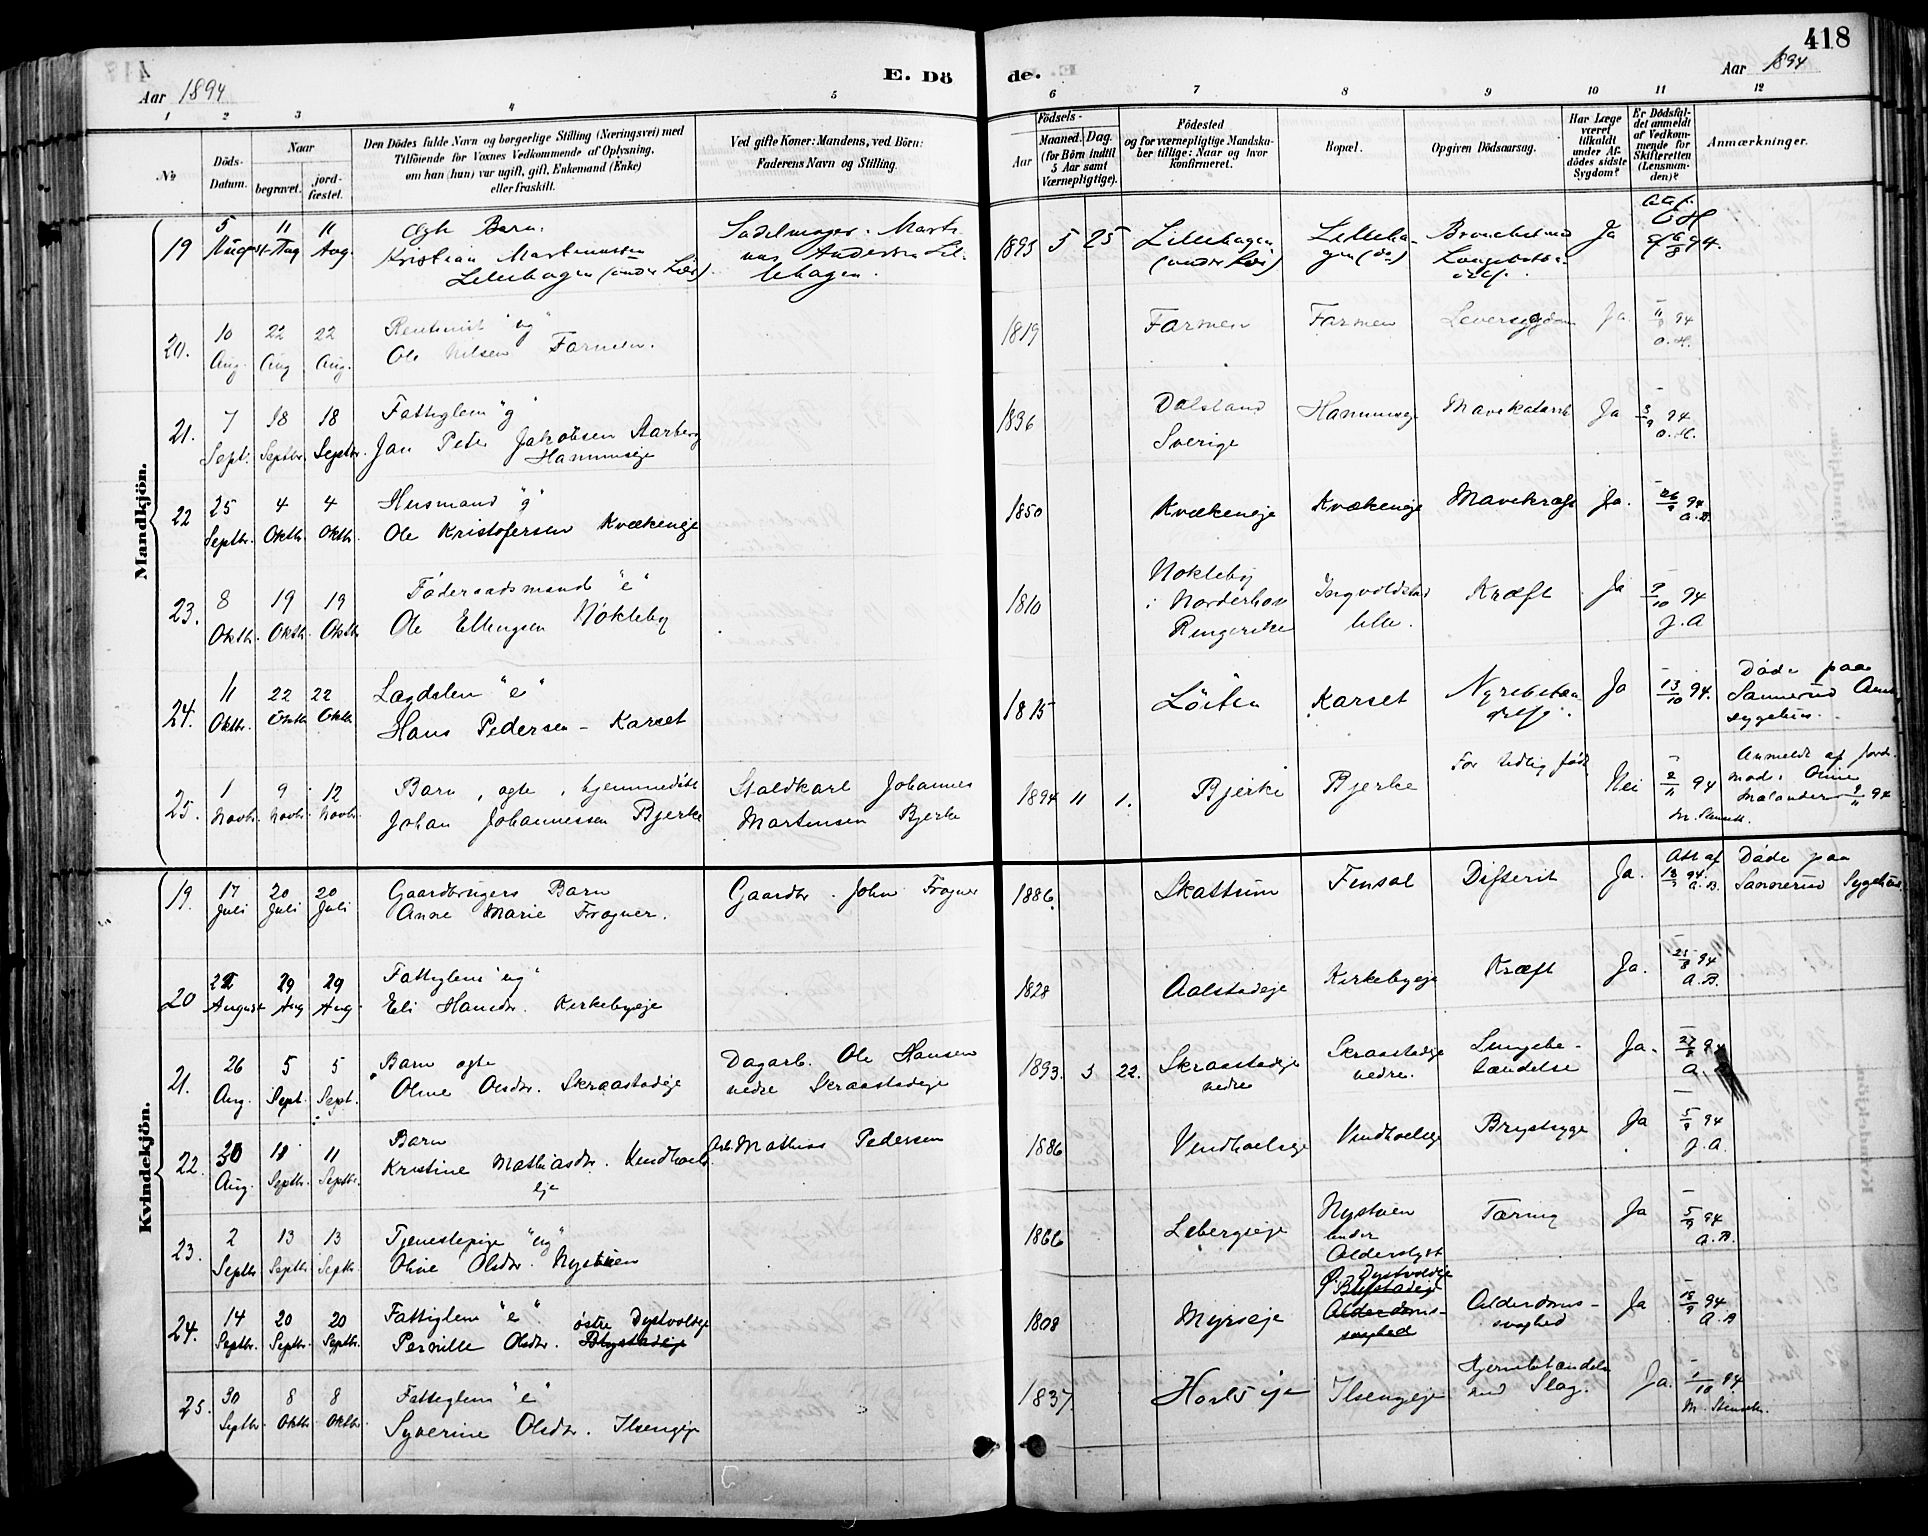 418
Aar 1894
E. Dö de.
Aar 1894
1 2 3 4 5 6 7 8 9 10 11 12
No
Döds-Datum.
Naar
begravet.
jord-fæstet.
Den Dödes fulde Navn og borgerlige Stilling (Næringsvei) med
Tilföiende for Voxnes Vedkommende af Oplysning,
om han (hun) var ugift, gift, Enkemand (Enke)
eller fraskilt.
Ved gifte Koner: Mandens, ved Börn:
Faderens Navn og Stilling.
Födsels-
Aar
Maaned. Dag.
(for Börn indtil
5 Aar samt
Værnepligtige).
Födested
og for værnepligtige Mandska-
ber tillige: Naar og hvor
konfirmeret.
Bopæl.
Opgiven Dödsaarsag.
Har Læge
været
tilkaldt
under Af-
dödes sidste
Sygdom?
Er Dödsfal-
det anmeldt
af Vedkom-
mende for
Skifteretten
(Lensman-
den)?
Anmærkninger.
Mandkjön.
19 5 August 11 Aug 11 Aug. Ægte Barn.
Kristian Martinussen
Lillehagen (under Løs).
Sadelmager. Marti-
nus Andersen Lil-
lehagen.
1893 5 25 Lillehagen
(under Løs)
Lilleha-
gen (do)
Ja
20. 10 Aug. 22 Aug 22 Aug. Rentenist "ug"
Ole Nilsen Farmen.
1819 Farmen Farmen Leversygdom Ja 11/8 94
a. H.
21. 7 Sept. 18 Septbr. 18 Septbr. Fattiglem "g"
Jan Peter Jakobsen Aarberg
Hammerseje
1836 Dalsland
Sverige
Mavekatarrh Ja 8/9 94
a. H.
22 25 Septbr. 4 Oktbr. 4 Oktbr. Husmand "g"
Ole Kristofersen Kvækeneje
1850 Kvækeneje Kvækeneje Mavekræft Ja. 26/9 94
a. B.
23. 8 Oktbr. 19 Oktbr. 19 Oktbr. Föderaadsmand "e"
Ole Ellingsen Nökleby
1810 Nökleby
i Norderhov
Ringerike
Ingvoldstad
lille.
Kræft Ja 9/10 94
J. A
24. 11 Oktbr. 22 Oktbr. 22 Oktbr. Lægdslem "e"
Hans Pedersen - Karset
1815 Löiten Karset Ja 13/10 94. Döde paa
Sannerud Amts
sygehus.
25. 1 Novbr. 9 Novbr. 12 Novbr. Barn, ægte, hjemmedöbt
Johan Johannessen Bjerke
Staldkarl Johannes
Martinsen Bjerke
1894 11 1. Bjerke Bjerke For tidlig födt Nei 2/11 94
M. Stensett.
Anmeldt af Jord-
mod. Oline
Malander 9/11 94
Kvindekjön.
19. 17 Juli 20 Juli 20 Juli Gaardbrugers Barn
Anne Marie Frogner.
Gaardbr. John Frogner
1886. Skattum Finsal Difterit Ja. Att af
18/7 94.
a. B.
Döde paa
Sannerud Sygehus.
20 22 August 29 Aug 29 Aug. Fattiglem "ug"
Eli Hansdr. Kirkebyeje
1828 Aalstadeje Kirkebyeje Kræft Ja. 25/8 94
A. B.
21. 26 Aug. 5 Sept. 5 Sept. Barn ægte
Oline Olsdr. Skraastadeje
Dagarb. Ole Hansen
nedre Skraastadeje
1893. 3 22. Skraastadeje
nedre
Skraastadeje
nedre.
Lungebe-
tændelse
Ja. 27/8 94
a.
22. 30 Aug. 11 Septbr. 11 Septbr. Barn
Kristine Mathiasdr. Vindhoels
eje
Arb. Mathias Pedersen
1886 Vindhoelseje Vindhoelseje Brystsyge Ja 5/9 94
J. A.
23. 2 Septbr 13 Septbr 13 Septbr. Tjenestepige "ug"
Oline Olsdr. Nystuen
1866 Lebergseje Nystuen
under
Alderslyst
Tæring Ja 5/9 94
a. B.
24. 14 Septbr. 20 Septbr. 20 Septbr. Fattiglem "e". östre Dystvoldeje
Pernille Olsdr.
1808 Myrseje Ö. Dystvoldeje
Alderdoms-
svaghed
Alderdoms-
svaghed
Ja 18/9 94
A. B
25. 30 Septbr 8 Oktbr. 8 Oktbr. Fattiglem "e"
Syverine Olsdr. Ilsengeje
1837. Ilsengeje Hjernebetændelse
med Slag.
Ja. 1/10 94
M. Stensett.